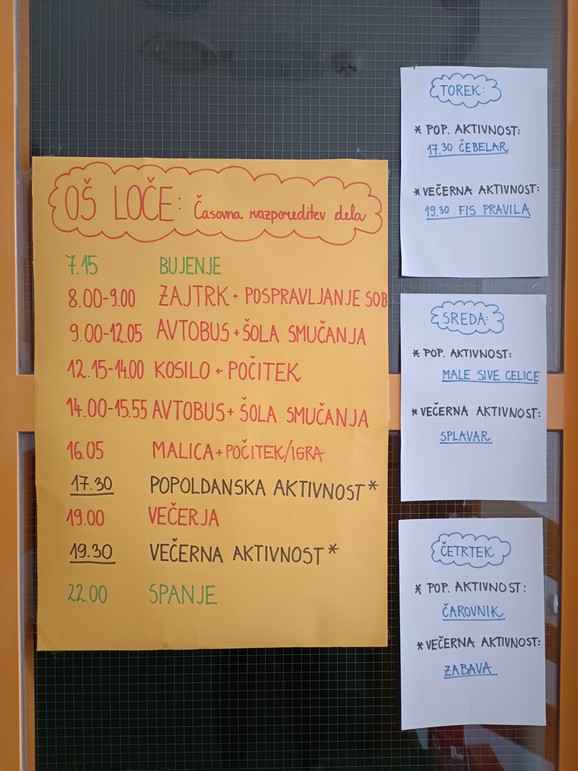 OŠ LOČE: Časovna razporeditev dela
7.15 BUJENJE
8.00-9.00 ZAJTRK + POSPRAVLJANJE SOB
9.00-12.05 AVTOBUS + ŠOLA SMUČANJA
12.15-14.00 KOSILO + POČITEK
14.00-15.55 AVTOBUS + ŠOLA SMUČANJA
16.05 MALICA + POČITEK/IGRA
17.30 POPOLDANSKA AKTIVNOST*
19.00 VEČERJA
19.30 VEČERNA AKTIVNOST*
22.00 SPANJE
TOREK:
* POP. AKTIVNOST:
17.30 ČEBELAR
* VEČERNA AKTIVNOST:
19.30 FIS PRAVILA
SREDA:
* POP. AKTIVNOST:
MALE SIVE CELICE
* VEČERNA AKTIVNOST:
SPLAVAR
ČETRTEK
* POP. AKTIVNOST:
ČAROVNIK
* VEČERNA AKTIVNOST:
ZABAVA